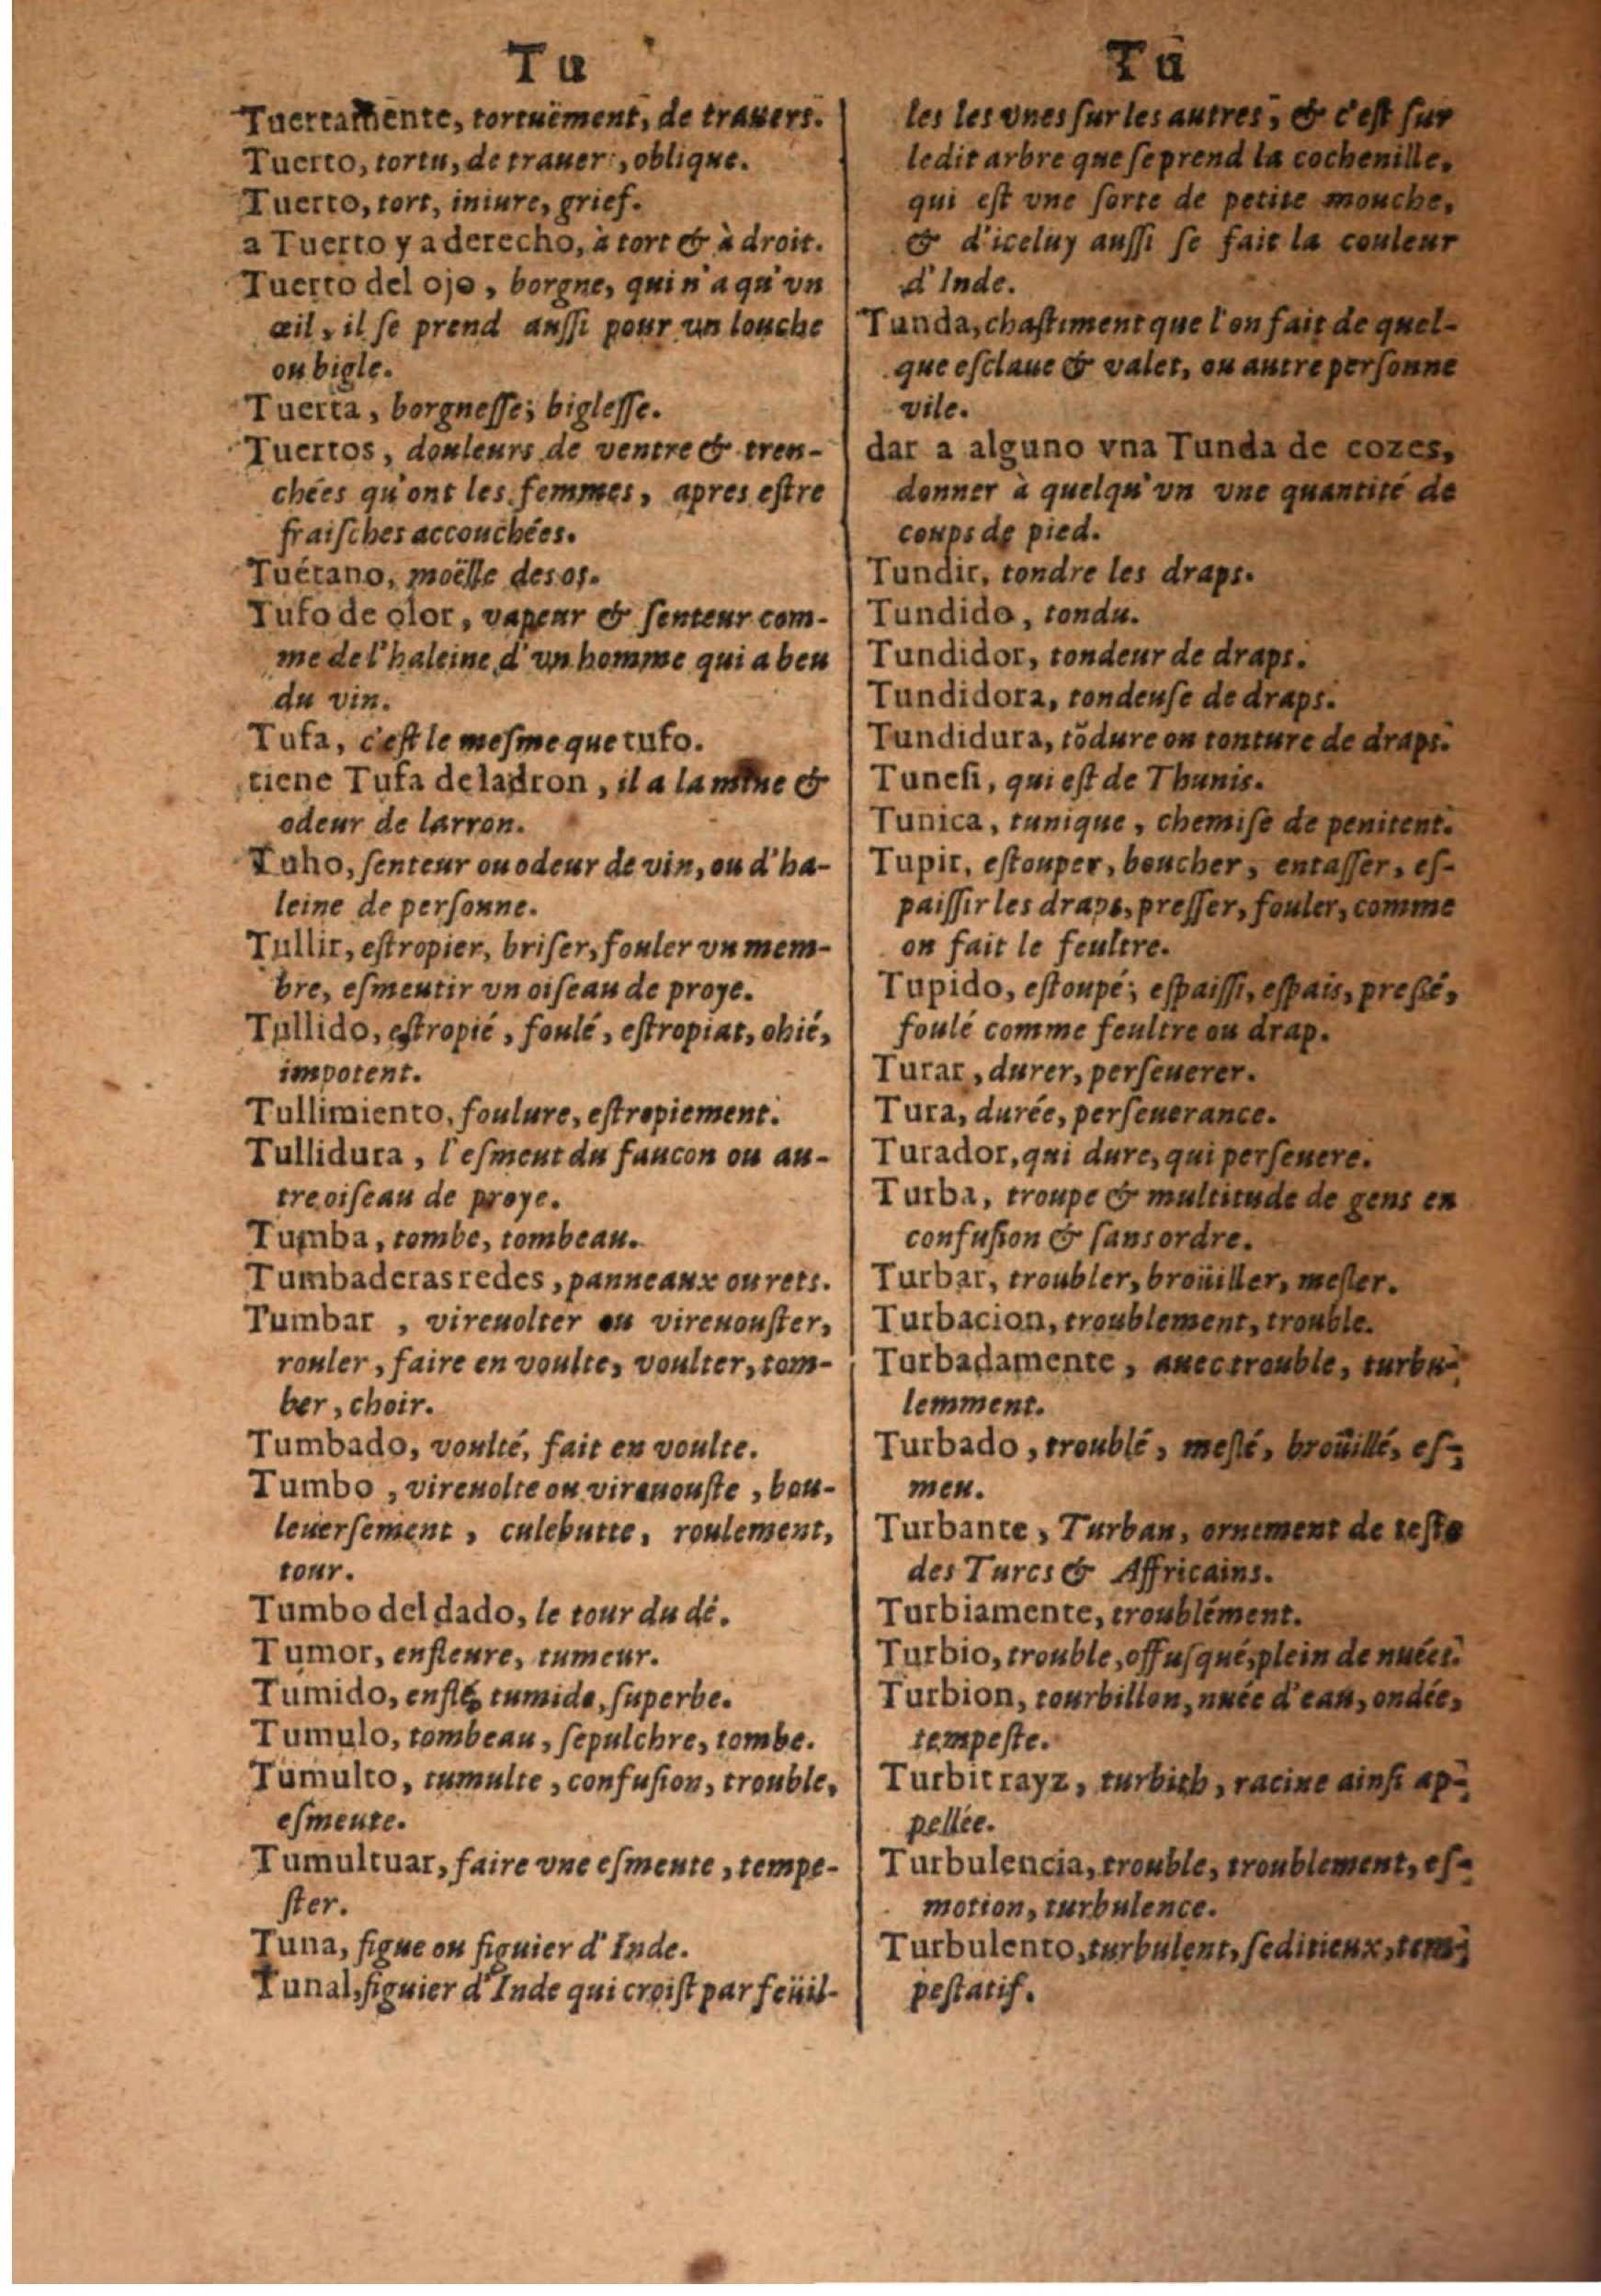 Tu
Tuertamente, tortuëment, de trauers.
Tuerto, tortu, de trauers, oblique.
Tuerto, tort, iniure, grief.
a Tuerto y a derecho, à tort & à droit.
Tuerto del ojo, borgne, qui n'a qu'vn
œil, il ſe prend auſſi pour un louche
ou bigle.
Tuerta, borgneſſe; bigleſſe.
Tuertos, douleurs de ventre & tren-
chées qu'ont les femmes, apres eſtre
fraiſches accouchées.
Tuétano, moëlle des os.
Tufo de olor, vapeur & ſenteur com-
me de l'haleine d'un homme qui a beu
du vin.
Tufa, c'eſt le meſme que tufo.
tiene Tufa de ladron, il a la mine &
odeur de larron.
Tuho, ſenteur ou odeur de vin, ou d'ha-
leine de perſonne.
Tullir, eſtropier, briſer, fouler vn mem-
bre, eſmeutir vn oiſeau de proye.
Tullido, eſtropié, foulé, eſtropiat, ohié,
impotent.
Tullimiento, foulure, eſtropiement.
Tullidura, l'eſmeut du faucon ou au-
tre oiſeau de proye.
Tumba, tombe, tombeau.
Tumbaderas redes, panneaux ou rets.
Tumbar, vireuolter ou vireuouſter,
rouler, faire en voulte, voulter, tom-
ber, choir.
Tumbado, voulté, fait en voulte.
Tumbo, vireuolte ou vireuouſte, bou-
leuerſement, culebutte, roulement,
tour.
Tumbo del dado, le tour du dé.
Tumor, enfleure, tumeur.
Tumido, enflé, tumide, ſuperbe.
Tumulo, tombeau, ſepulchre, tombe.
Tumulto, tumulte, confuſion, trouble,
eſmeute.
Tumultuar, faire vne eſmeute, tempe-
ſter.
Tuna, figue ou figuier d'Inde.
Tunal, figuier d'Inde qui croiſt par feüil-
Tu
les les vnes ſur les autres, & c'eſt ſur
ledit arbre que ſe prend la cochenille,
qui eſt vne ſorte de petite mouche,
& d'iceluy auſſi ſe fait la couleur
d'Inde.
Tunda, chaſtiment que l'on fait de quel-
que eſclaue & valet, ou autre perſonne
vile.
dar a alguno vna Tunda de cozes,
donner à quelqu'vn vne quantité de
coups de pied.
Tundir, tondre les draps.
Tundido, tondu.
Tundidor, tondeur de draps.
Tundidora, tondeuſe de draps.
Tundidura, tõdure ou tonture de draps.
Tuneſi, qui eſt de Thunis.
Tunica, tunique, chemiſe de penitent.
Tupir, eſtouper, boucher, entaſſer, eſ-
paiſſir les draps, preſſer, fouler, comme
on fait le feultre.
Tupido, eſtoupé, eſpaiſſi, eſpais, preſſé,
foulé comme feultre ou drap.
Turar, durer, perſeuerer.
Tura, durée, perſeuerance.
Turador, qui dure, qui perſeuere.
Turba, troupe & multitude de gens en
confuſion & ſans ordre.
Turbar, troubler, broüiller, meſler.
Turbacion, troublement, trouble.
Turbadamente, auec trouble, turbu-
lemment.
Turbado, troublé, meſlé, broüillé, eſ-
meu.
Turbante, Turban, ornement de teſte
des Turcs & Affricains.
Turbiamente, troublément.
Turbio, trouble, offuſqué, plein de nuées.
Turbion, tourbillon, nuée d'eau, ondée,
tempeſte.
Turbit rayz, turbith, racine ainſi ap-
pellée.
Turbulencia, trouble, troublement, eſ-
motion, turbulence.
Turbulento, turbulent, ſeditieux, tem-
peſtatif.